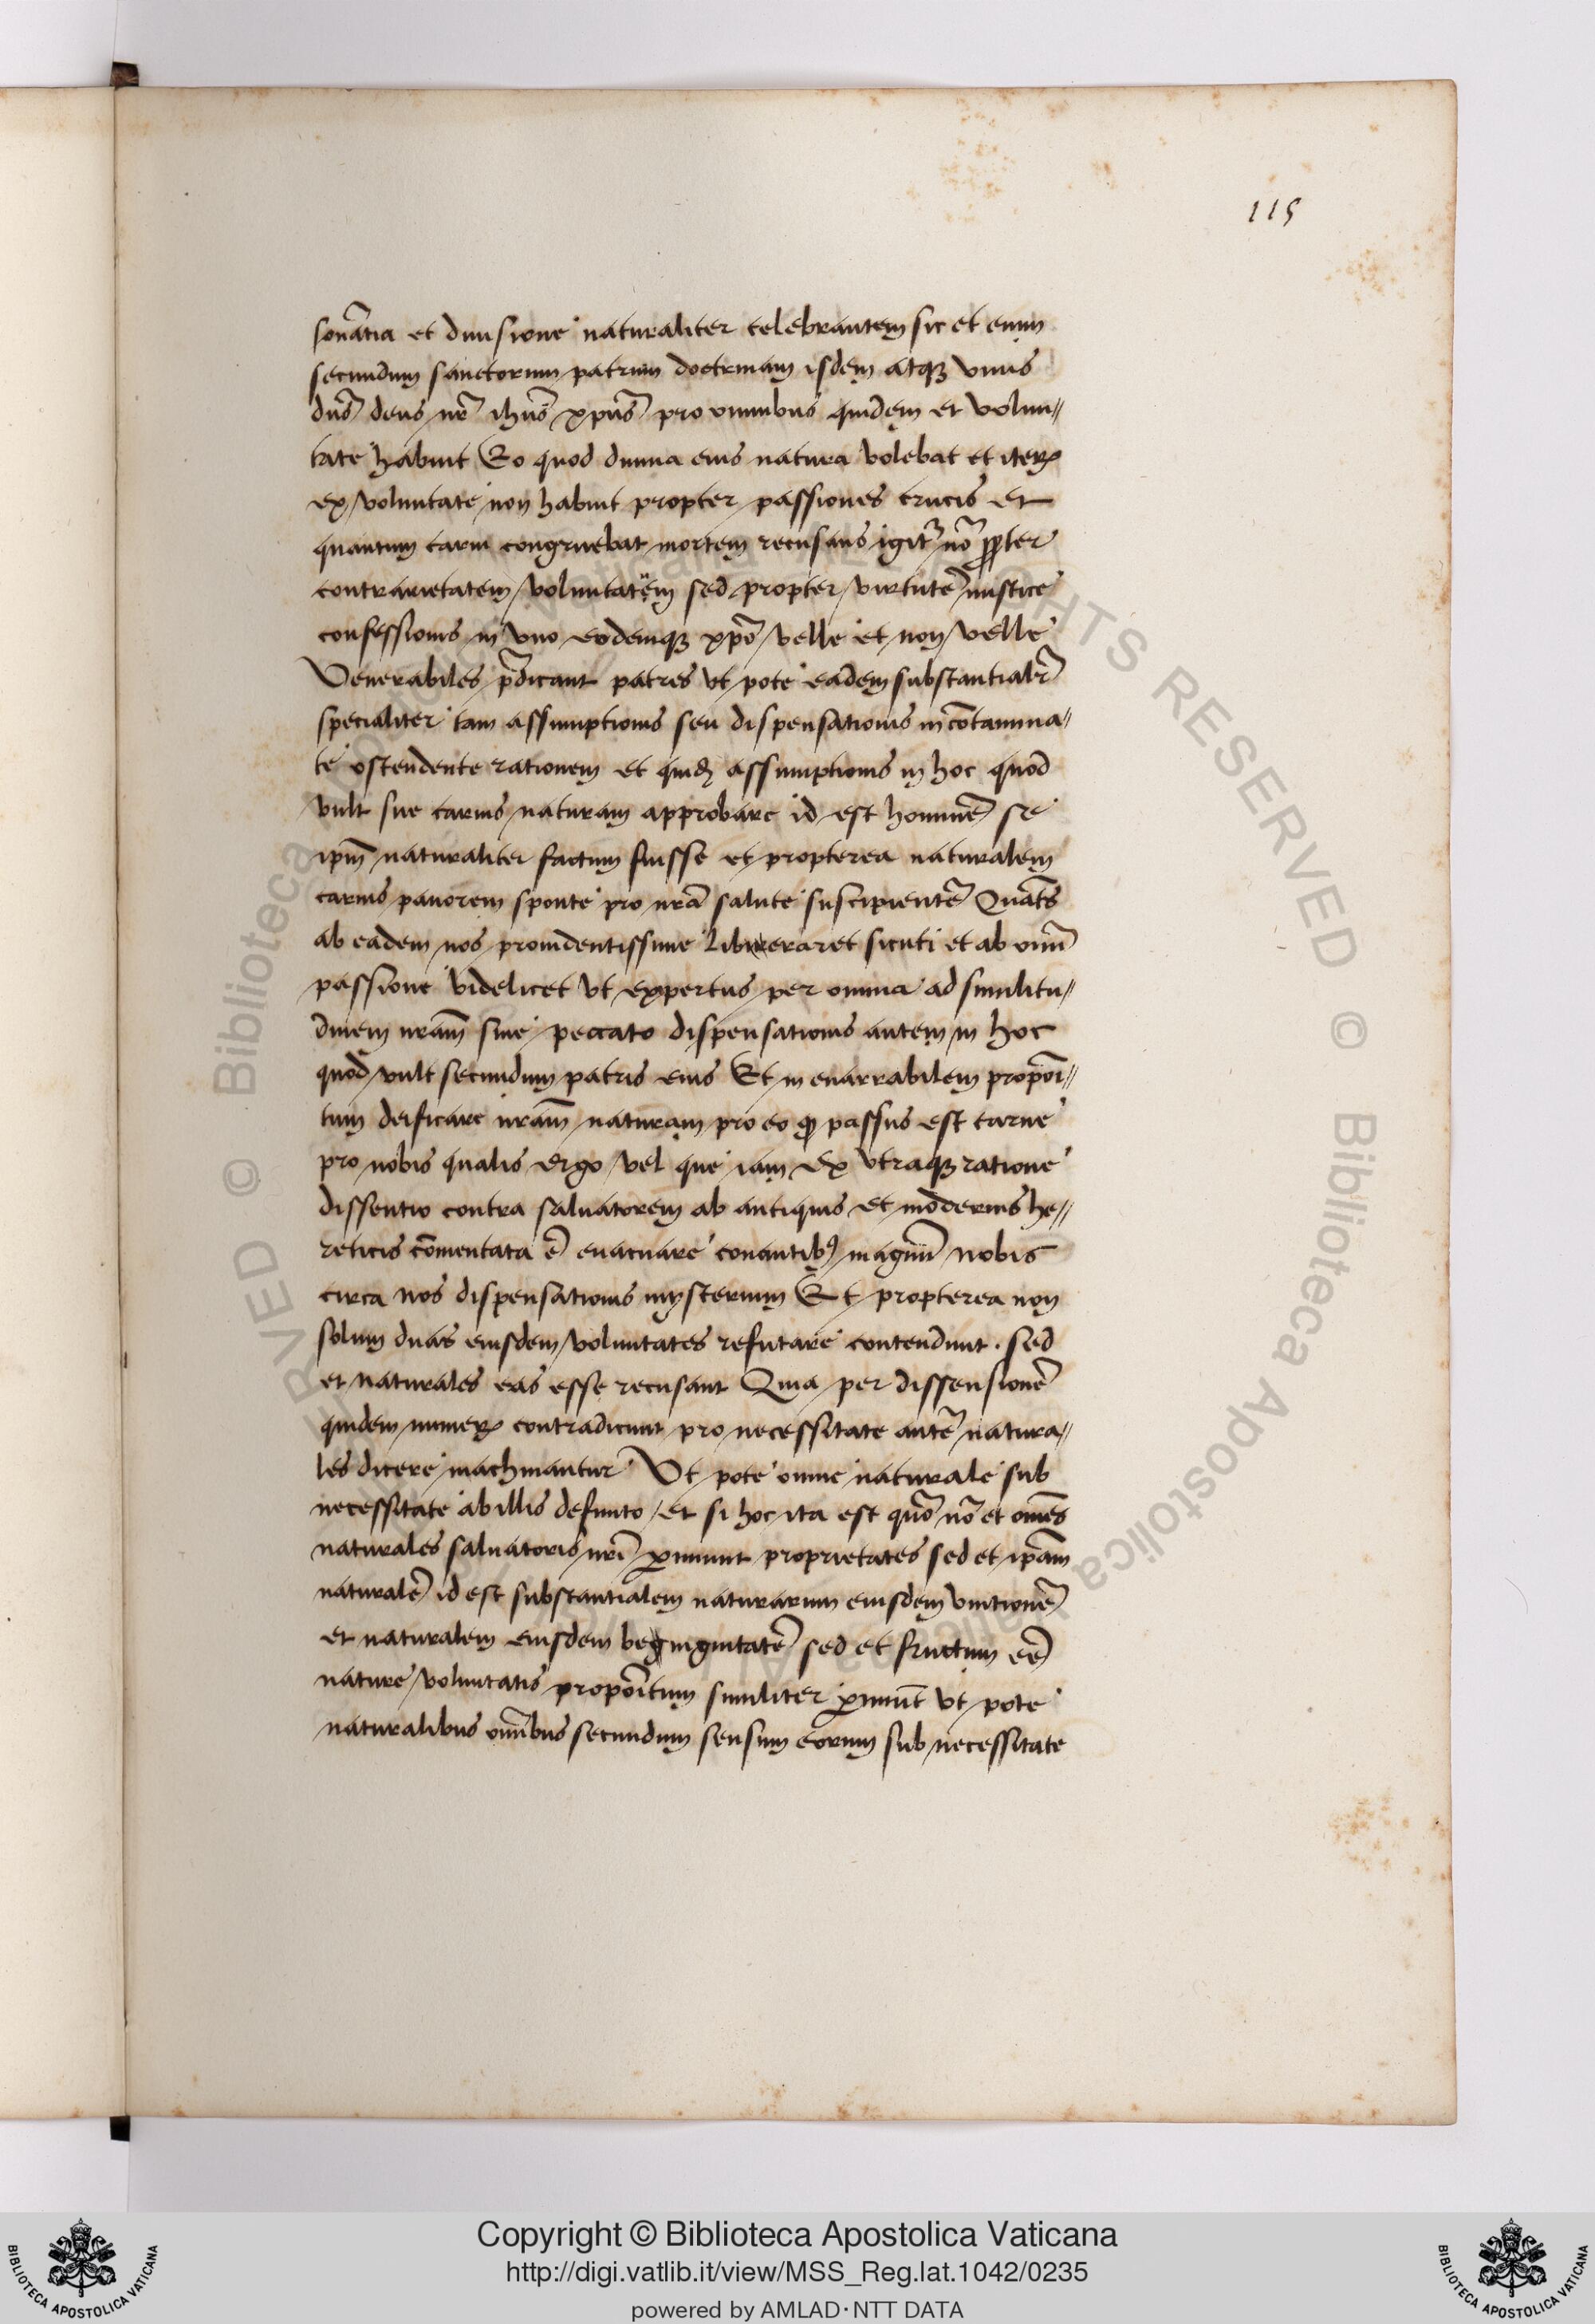 115
sonātia et diuisione naturaliter celebrantem sic et enim
secundum sanctorum patrum doctrinam isdem atqꝫ vnus
dn̄s deus nr̄ ihūs xpūs pro omnibus quidem et volun〃
tate habuit Eo quod diuina eius natura volebat et iterꝝ
ex voluntate non habuit propter passiones crucis et
quantum carni congruebat mortem recusans igitr̄ nō ꝓpter
contrarietatem voluntatem sed propter virtutē mistice
confessionis in vno eodemqꝫ xpō velle et non velle
Venerabiles p̄dicant patres vt pote eadem substantialr̄
specialiter tam assumptionis seu dispensationis incōtamina〃
te ostendente rationem et quidē assumptionis in hoc quod
vult sue carnis naturam approbare id est hominē se
ipm̄ naturaliter factum fuisse et propterea naturalem
carnis pauorem sponte pro nrā salute suscipientē Quāts
ab eadem nos prouidentissime liberaret sicuti et ab omī
passione videlicet vt expertus per omnia ad similitu〃
dinem nrām sine peccato dispensationis autem in hoc
quod vult secundum patris eius Et in enarrabilem propoī〃
tum deificare nrām naturam pro eo ꝙ passus est carne
pro nobis qualis ergo vel que iam ex vtraqꝫ ratione
dissentio contra saluatorem ab antiquis et modernis he〃
reticis cōmentata ē euacuare conantibꝰ magnū nobis
circa nos dispensationis mysterium Et propterea non
solum duas eiusdem voluntates refutare contendunt . sed
et naturales eas esse recusant Quia per dissensionē
quidem numerꝝ contradicunt pro necessitate autē natura〃
les dicere machinantur Vt pote omne naturale sub
necessitate ab illis definito et si hoc ita est quō nō et om̄es
naturales saluatoris nrī ꝑimunt proprietates sed et ip̄am
naturalē id est substantialem naturarum eiusdem vnitionē
et naturalem eiusdem benignitatē sed et fructum eē
nature voluntatis propoītum similiter ꝑimūt vt pote
naturalibus omībus secundum sensum eorum sub necessitate
Copyright © Biblioteca Apostolica Vaticana
http://digi.vatlib.it/view/MSS_Reg.lat.1042/0235
powered by AMLAD·NTT DATA
BIBLIOTECA APOSTOLICA VATICANA
BIBLIOTECA APOSTOLICA VATICANA